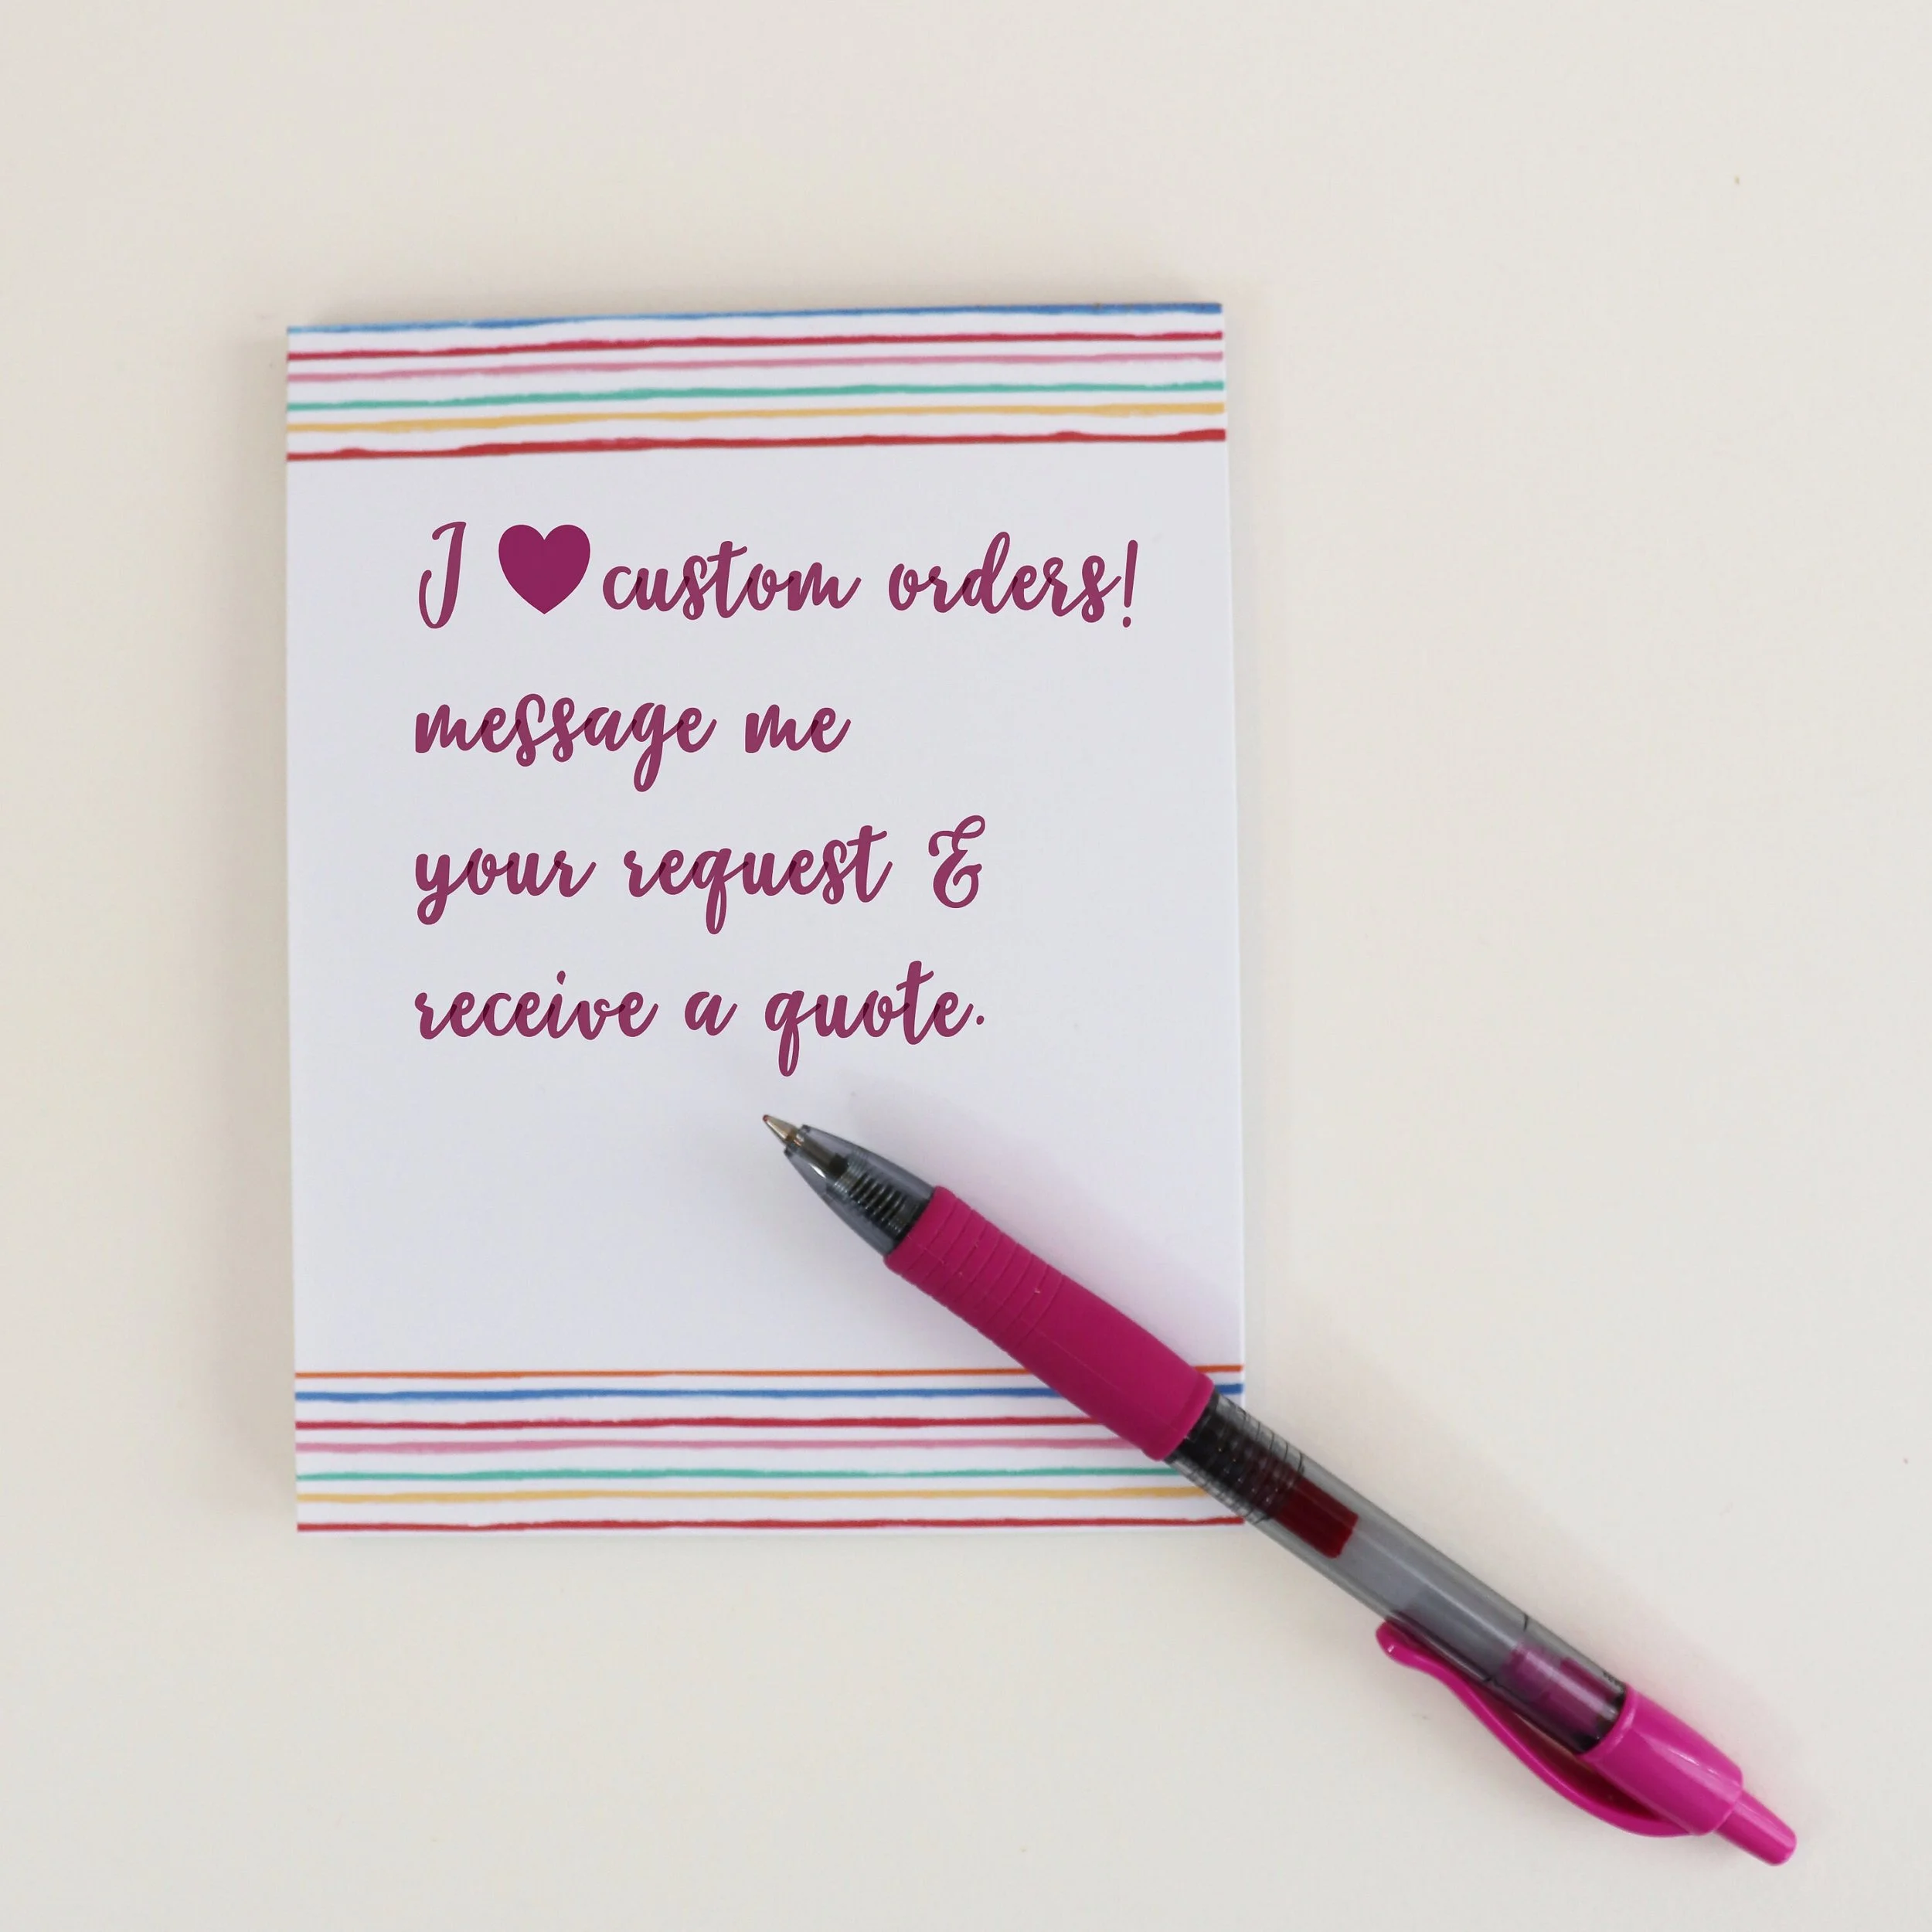 I ♥ custom orders!
message me
your request &
receive a quote.